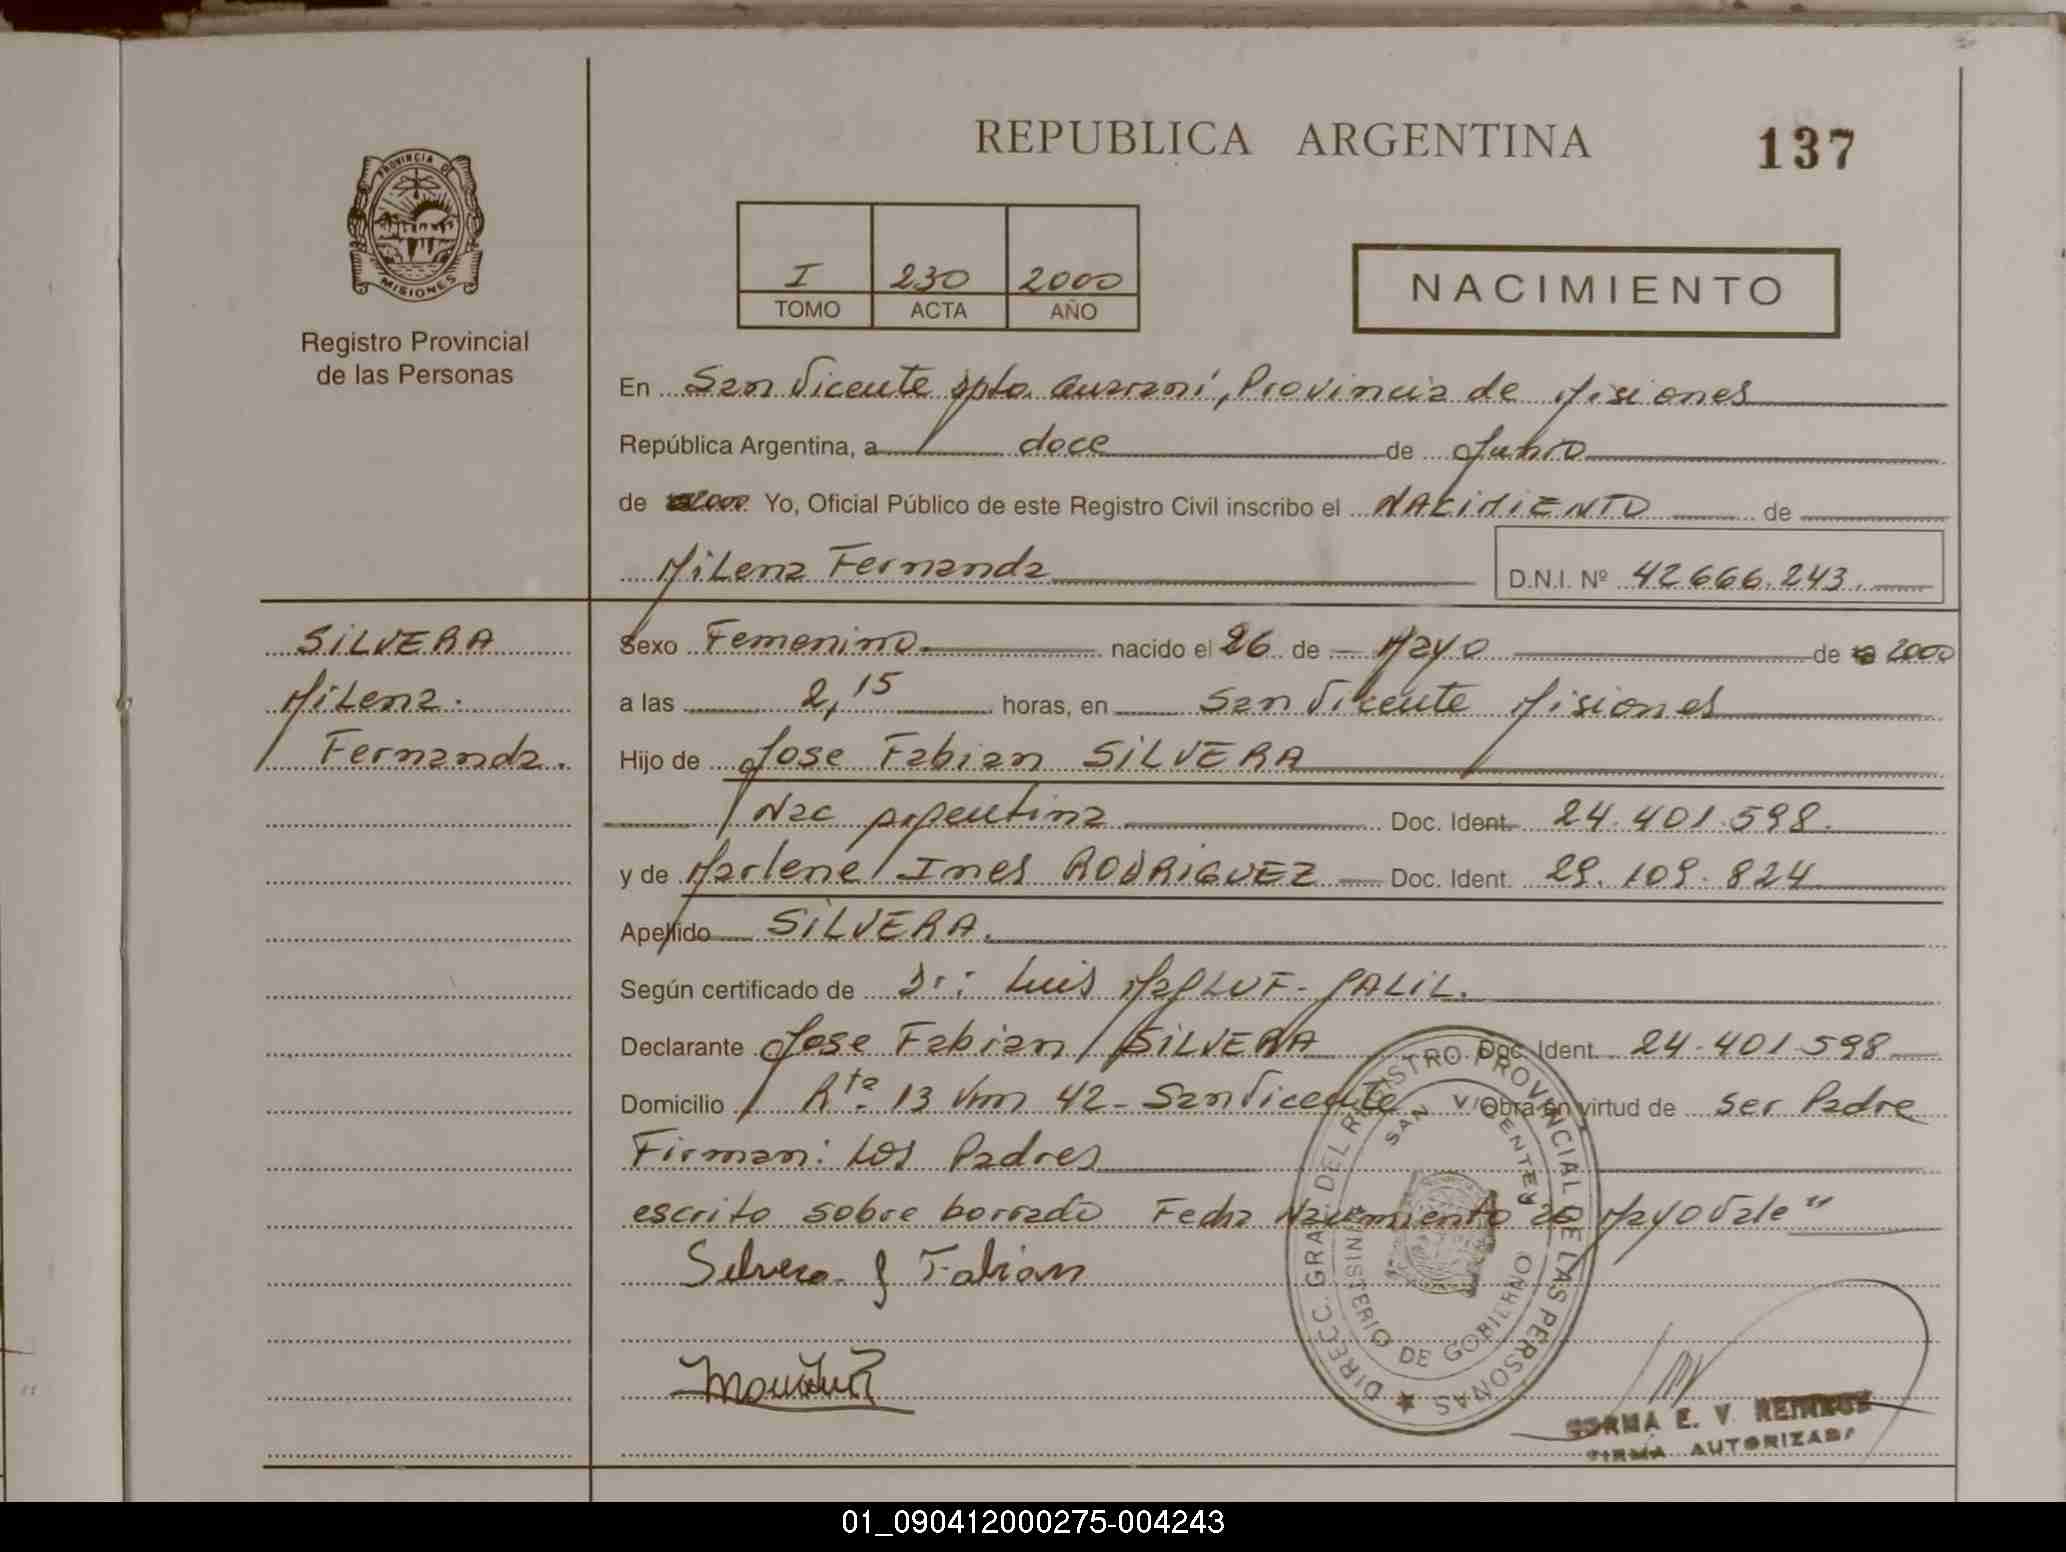 REPUBLICA ARGENTINA
137
PROVINCIA DE
MISIONES
Registro Provincial
de las Personas
I 230 2000
TOMO ACTA AÑO
NACIMIENTO
En San Vicente Dpto. Guarani, Provincia de Misiones
República Argentina, a doce de Junio
de 2000 Yo, Oficial Público de este Registro Civil inscribo el NACIMIENTO de
Milena Fernanda D.N.I. Nº 42.666.243.
SILVERA
Milena
Fernanda.
Sexo Femenino nacido el 26 de Mayo de 2000
a las 2,15 horas, en San Vicente Misiones
Hijo de Jose Fabian SILVERA
Nac Argentina Doc. Ident. 24.401.598.
y de Marlene Ines RODRIGUEZ Doc. Ident. 29.109.824
Apellido SILVERA.
Según certificado de Dr: Luis MaPLUF-JALIL.
Declarante Jose Fabian SILVERA Doc. Ident. 24.401.598
Domicilio Rta. 13 Km 42 - San Vicente Obra en virtud de ser Padre
Firman: Los Padres
escrito sobre borrado Fecha Nacimiento 26 Mayo Vale"
Silvera J Fabian
DIRECC. GRAL. DEL REGISTRO PROVINCIAL DE LAS PERSONAS
SAN VICENTE
MINISTERIO DE GOBIERNO
NORMA E. V.
FIRMA AUTORIZADA
01_090412000275-004243